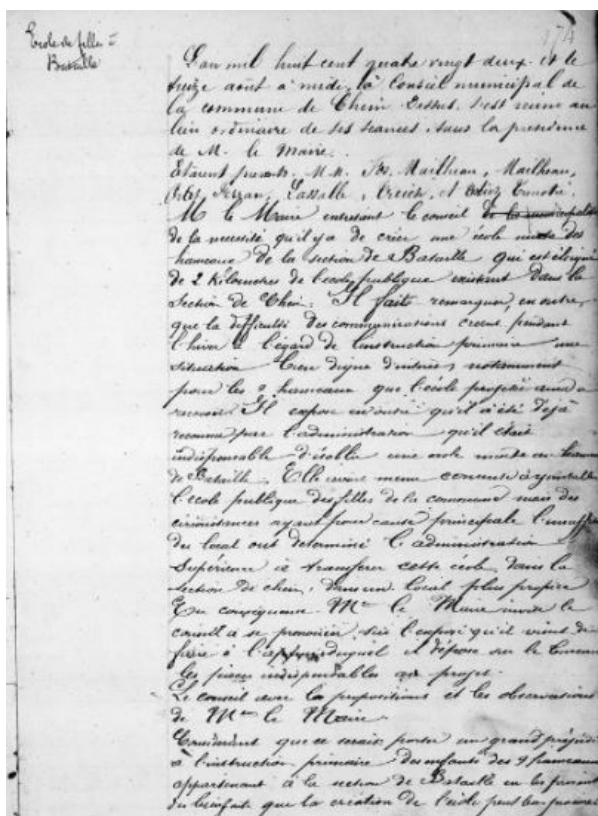 174
Ecole de filles =
Bataille
L'an mil huit cent quatre vingt deux et le
treize août à midi, le Conseil municipal de
la commune de Chein Dessus, s'est réuni au
lieu ordinaire de ses séances, sous la présidence
de M. le Maire.
Etaient présents. M.M. Mailheau, Mailheau,
Lassalle,
M. le Maire entretient le conseil de la municipalité
de la nécessité qu'il y a de créer une école mixte des
hameaux de la section de Bataille qui est éloigné
de 2 Kilomètres de l'école publique existant dans la
Section de Chein. Il fait remarquer, en outre,
que la difficulté des communications créent pendant
l'hiver à l'égard de l'instruction primaire une
situation bien digne d'intérêt, notamment
pour les 9 hameaux que l'école projetée aura à
recevoir. Il expose en outre qu'il a été déjà
reconnu par l'administration qu'il était
indispensable d'établir une école mixte au hameau
de Bataille. Elle avait même consenti à y installer
l'école publique des filles de la commune mais des
circonstances ayant pour cause principale
du local ont déterminé l'administration
Supérieure à transférer cette école dans la
section de chein, dans un local plus propice
En conséquence Mr le Maire invite le
conseil à se prononcer sur l'exposé qu'il vient de
faire à l'appui duquel il dépose sur le bureau
les pièces indispensables au projet.
Le conseil les propositions et les observations
de Mr le Maire
Considérant que ce serait porter un grand préjudice
à l'instruction primaire des enfants des 9 hameaux
appartenant à la section de Bataille en les privant
du bienfait que la création de l'école peut leur procurer